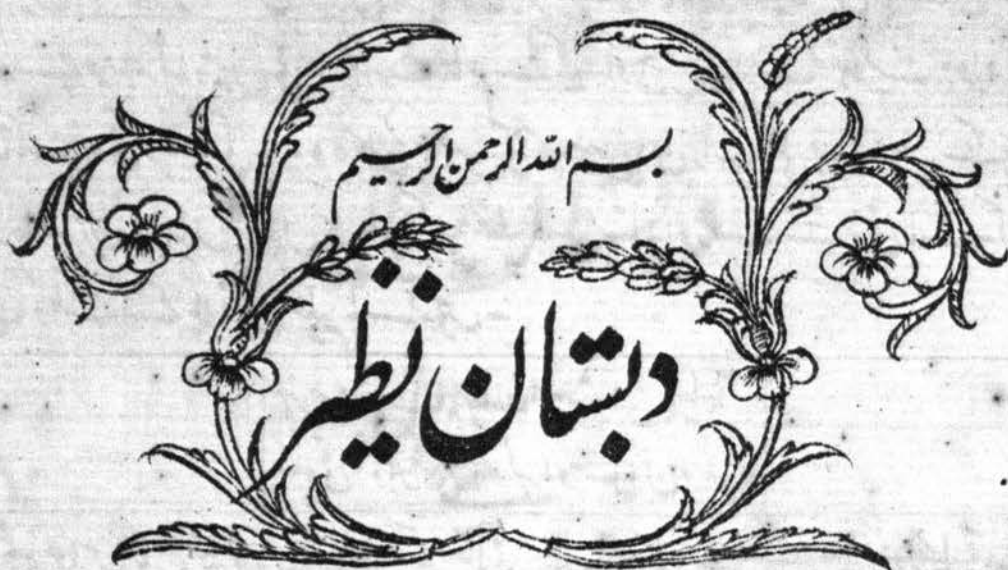 بسم الله الرحمن الرحیم
دبستان نظر